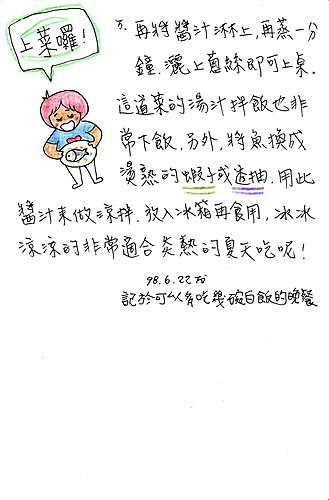 上菜囉!
再將醬汁淋上,再蒸一分
鐘.灑上蔥絲即可上桌.
這道菜的湯汁拌飯也非
常下飯,另外,將魚換成
燙熟的蝦子或透抽,用此
醬汁來做涼拌.放入冰箱再食用,冰冰
涼涼的非常適合炎熱的夏天吃呢!
98.6.22
記於可以多吃幾碗白飯的晚餐